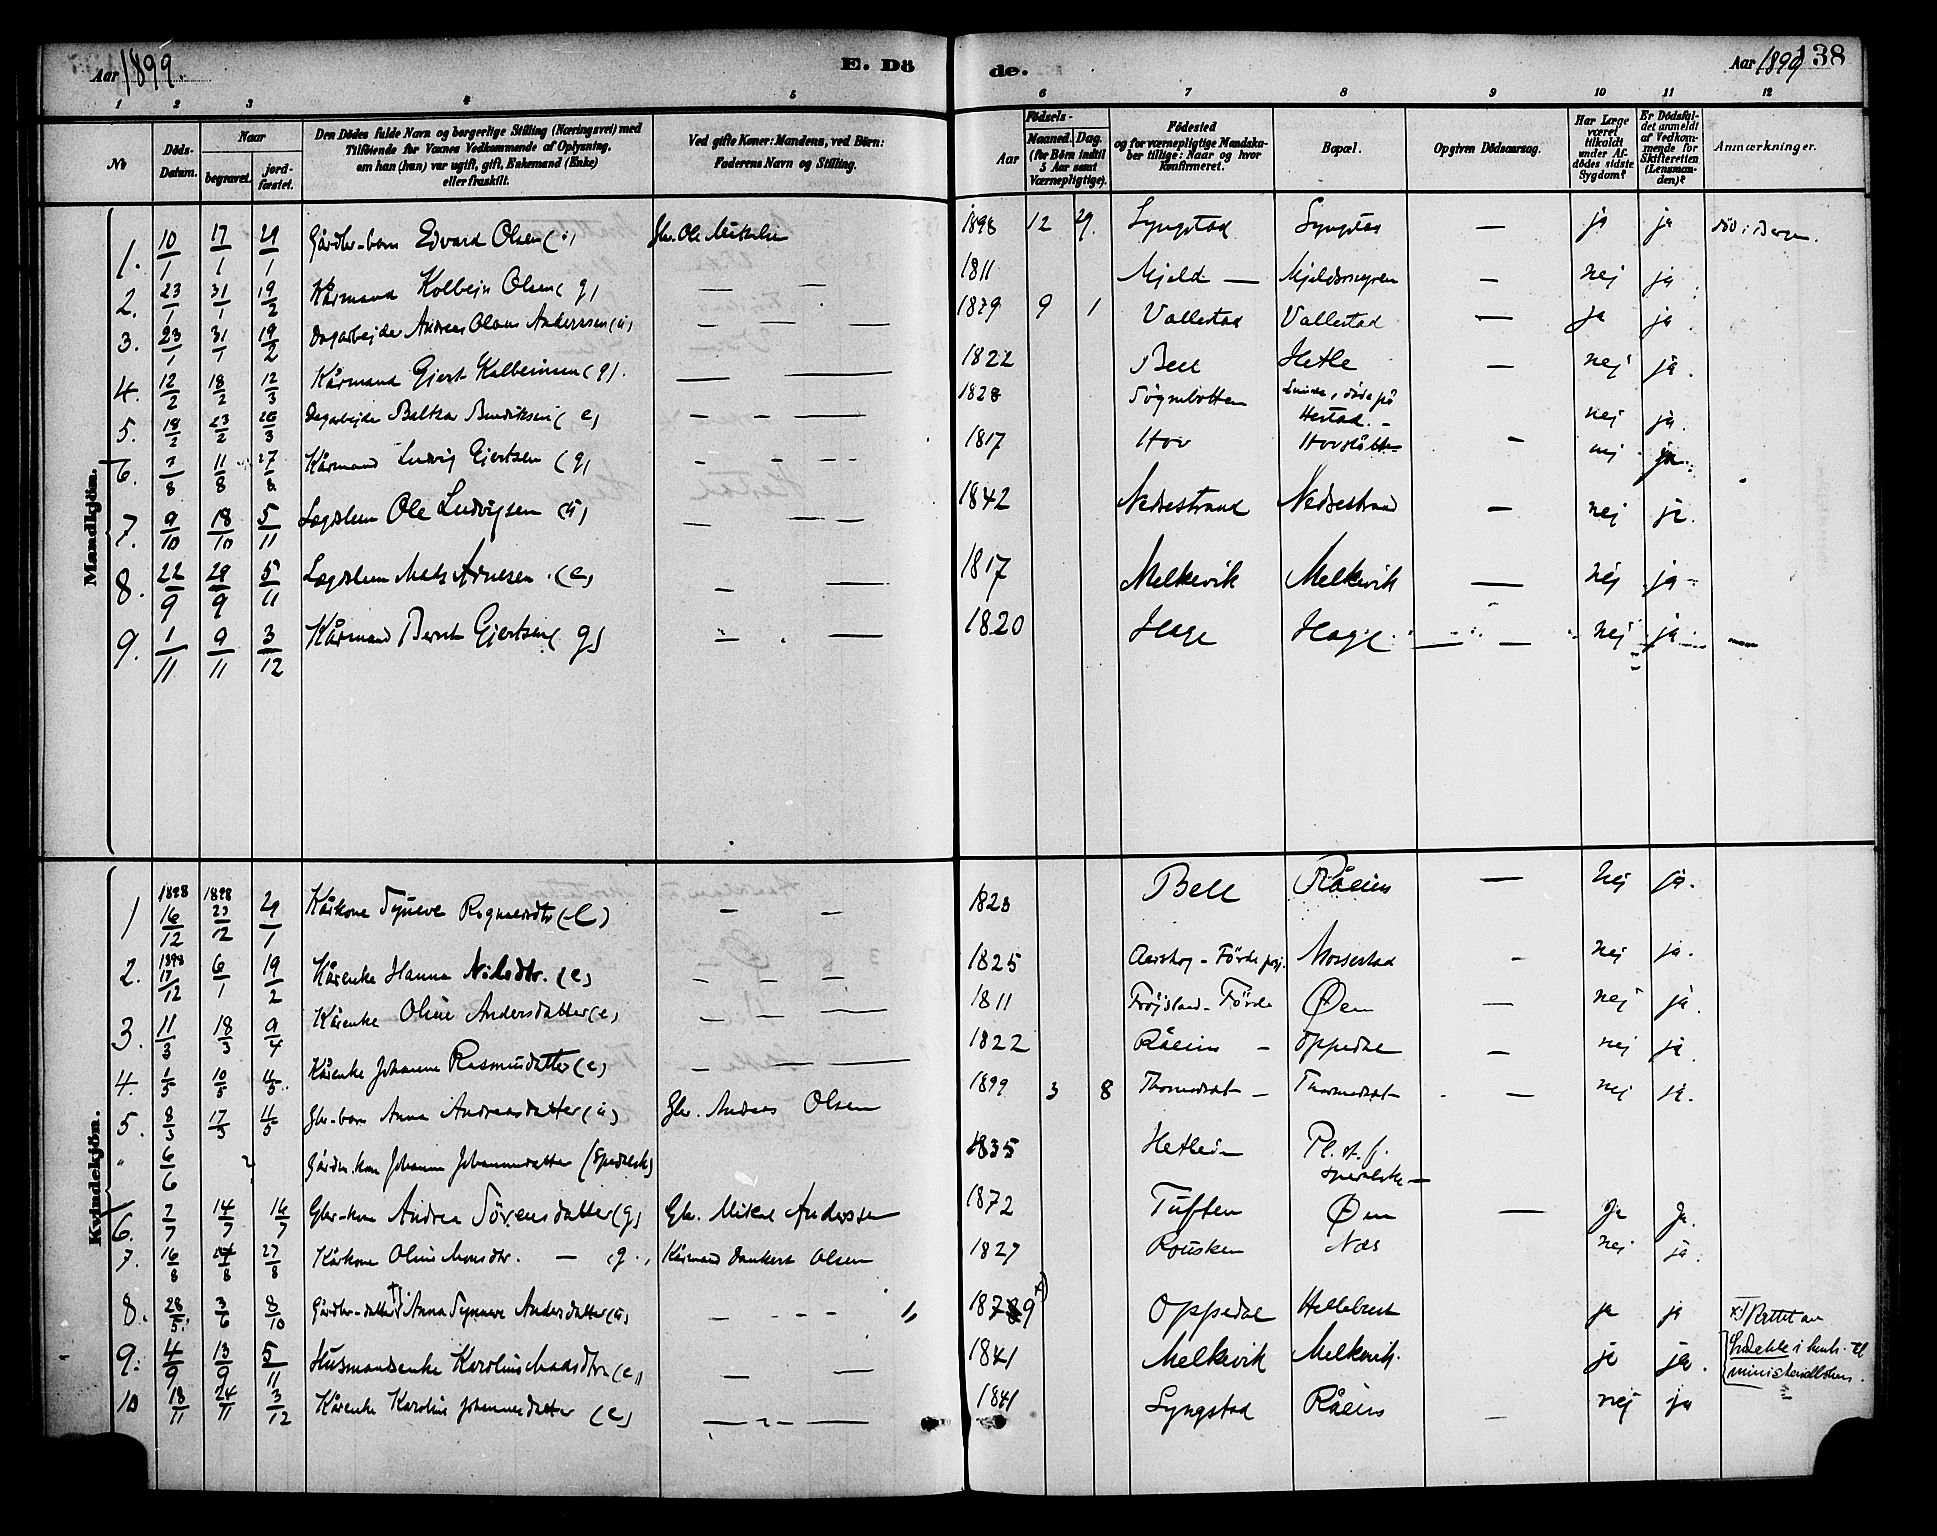 Aar 1899. E. Dö de. Aar 1899 138
1 2 3 4 5 6 7 8 9 10 11 12
No
Döds-Datum.
Naar
begravet.
jord-fæstet.
Den Dödes fulde Navn og borgerlige Stilling (Næringsvei) med
Tilföiende for Voxnes Vedkommende af Oplysning,
om han (hun) var ugift, gift, Enkemand (Enke)
eller fraskilt.
Ved gifte Koner: Mandens, ved Börn:
Faderens Navn og Stilling.
Födsels-
Aar
Maaned. Dag.
(for Börn indtil
5 Aar samt
Værnepligtige).
Födested
og for værnepligtige Mandska-
ber tillige: Naar og hvor
konfirmeret.
Bopæl.
Opgiven Dödsaarsag.
Har Læge
været
tilkaldt
under Af-
dödes sidste
Sygdom?
Er Dödsfal-
det anmeldt
af Vedkom-
mende for
Skifteretten
(Lensman-
den)?
Anmærkninger.
Mandkjön.
1. 10/1 17/1 29/1 Gårdbr-barn Edvard Olsen Gbr. Ole Mikelsen 1898 12 29. Lyngstad Lyngstad — ja ja död i Bergen.
2. 23/1 31/1 19/2 Kårmand Kolbejn Olsen (g) — — 1811 Mjeld — — nej ja
3. 23/1 31/1 19/2 Dagarbejder Andreas Olaus Anderssen (ú) — — — 1879 9 1 Vallestad Vallestad — ja ja
4. 12/2 18/2 12/3 Kårmand Gjert Kolbeinsen (g). — — 1822 Bell Hetle — nej ja.
5. 18/2 23/2 26/3 Dagarbejder Baltzar Bendiksen (e) — — — 1828 Sögnebotten Hestad. — nej ja.
6. 7/8 11/8 27/8 Kårmand Ludvig Gjertsen (g) — — — 1817 Hov — nej ja.
7. 9/10 18/10 5/11 Lægdslem Ole Ludvigsen (ú) — — — 1842 Nedrestrand Nedrestrand — nej ja.
8. 22/9 29/9 5/11 Lægdslem Mads Arnesen. (e) — — 1817 Melkevik Melkevik — nej ja
9. 1/11 9/11 3/12 Kårmand Bernt Gjertsen (g) — — 1820 Hage Hage — — nej ja —
Kvindekjön.
1 1898 16/12 1898 23/12 29/1 Kårkone Synneve Ragnvaldtr — — 1823 Bell Råeim — nej ja.
2. 1898 17/12 6/1 19/2 Kårenke Hanna Nilsdtr. (e) — — 1825 Förde Mossestad — nej ja.
3. 11/3 18/3 9/4 Kårenke Oline Andersdatter (e) — — — 1811 Förde Øen — nej ja.
4. 1/5 10/5 11/5. Kårenke Johanne Rasmusdatter (e) — — — 1822 Råeim — Oppedal — nej ja.
5. 8/3 17/3 11/5 Gbr-barn Anna Andreasdatter (ú) Gbr. Andreas Olsen 1899 3 8 — — nej ja.
" 6/6 Gårdbr. kone Johanne Johannesdatter (Spedalsk) 1835 Pl. st. f. spedalske —
6. 7/7 14/7 16/7 Gbr-kone Andrea Sörensdatter (g) Gbr. Mikal Anderssen 1872 Tuften Øen — Ja Ja.
7. 16/8 24/8 27/8 Kårkone Oline Monsdtr. — (g.) Kårmand Dankert Olsen 1827 Rousken Næs nej ja
8. 28/5. 3/6 8/10 Gårdbr-datter Anna Synneve Andersdatter (ú) — — — 1879 x) Oppedal Hellebust ja ja x) Rettet av
9. 4/9 13/9 5/11 Husmandsenke Karoline Madsdtr (e) — — 1841 Melkevik Melkevik. ja ja.
10 18/11 24/11 3/12 Kårenke Karoline Johannesdatter (e) — — — 1841 Lyngstad Råeim — nej ja ministerialboken.